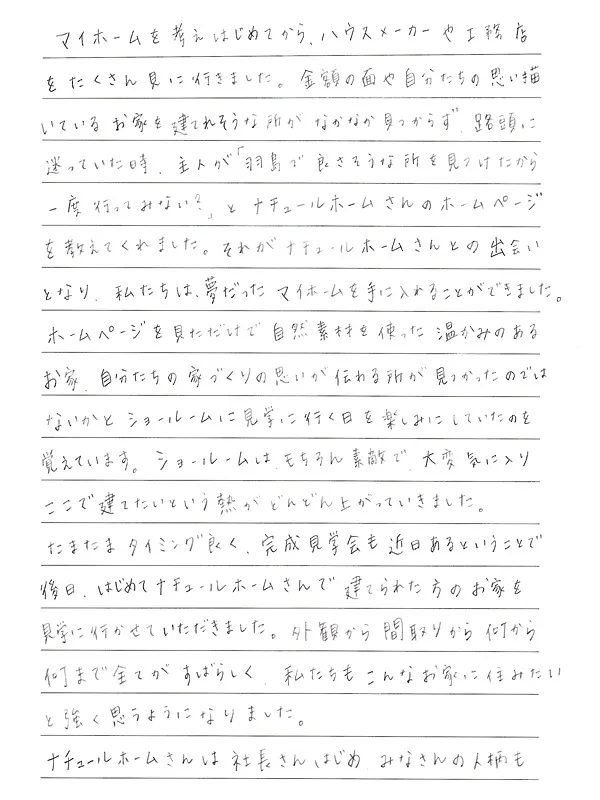 マイホームを考えはじめてから、ハウスメーカーや工務店
をたくさん見に行きました。金額の面や自分たちの思い描
いているお家を建てれそうな所がなかなか見つからず、路頭に
迷っていた時、主人が「羽島で良さそうな所を見つけたから
一度行ってみない?」とナチュールホームさんのホームページ
を教えてくれました。それがナチュールホームさんとの出会い
となり、私たちは、夢だったマイホームを手に入れることができました。
ホームページを見ただけで自然素材を使った温かみのある
お家、自分たちの家づくりの思いが伝わる所が見つかったのでは
ないかとショールームに見学に行く日を楽しみにしていたのを
覚えています。ショールームは、もちろん素敵で、大変気に入り
ここで建てたいという熱がどんどん上がっていきました。
たまたまタイミング良く、完成見学会も近日あるということで
後日、はじめてナチュールホームさんで建てられた方のお家を
見学に行かせていただきました。外観から間取りから何から
何まで全てがすばらしく、私たちもこんなお家に住みたい
と強く思うようになりました。
ナチュールホームさんは社長さんはじめ、みなさんの人柄も